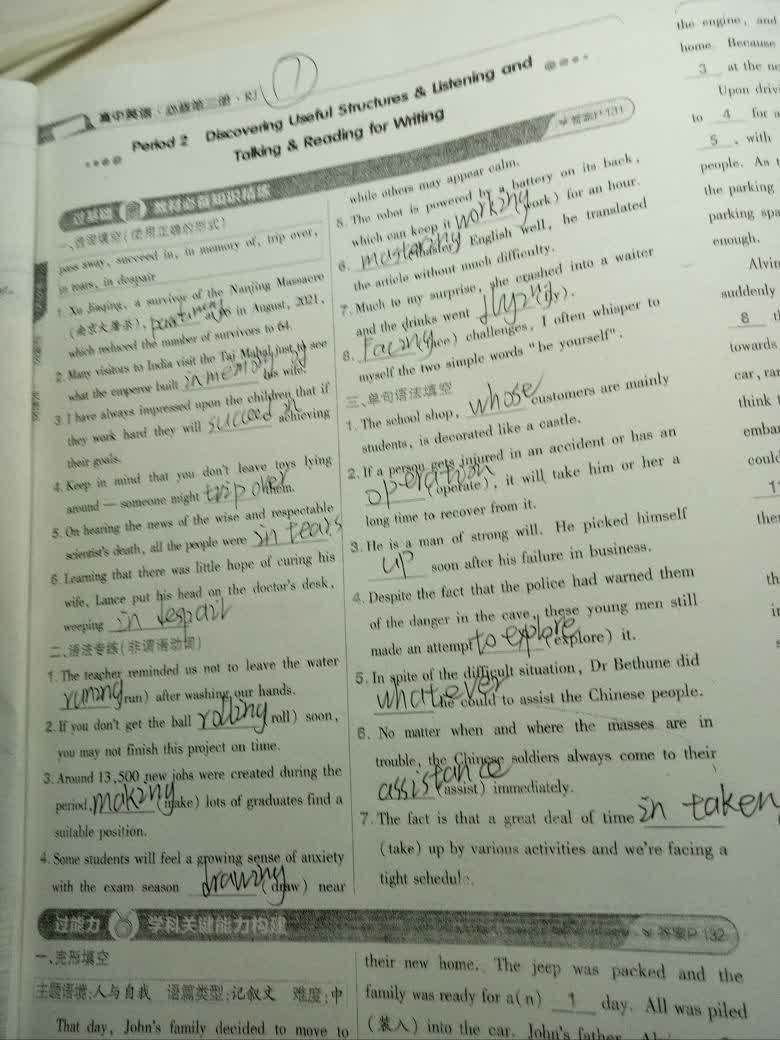 高中英语·必修第二册·RJ
7
Period 2 Discovering Useful Structures & Listening and
Talking & Reading for Writing
答案P 131
过基础 教材必备知识精练
一、语境填空(使用正确的形式)
pass away, succeed in, in memory of, trip over,
in tears, in despair
1. Xu Jiaqing, a survivor of the Nanjing Massacre
(南京大屠杀), in August, 2021,
which reduced the number of survivors to 64.
2. Many visitors to India visit the Taj Mahal just to see
what the emperor built in memory of his wife.
3. I have always impressed upon the children that if
they work hard they will succeed in achieving
their goals.
4. Keep in mind that you don't leave toys lying
around — someone might trip over them.
5. On hearing the news of the wise and respectable
scientist's death, all the people were in tears
6. Learning that there was little hope of curing his
wife, Lance put his head on the doctor's desk,
weeping in despair
二、语法专练(非谓语动词)
1. The teacher reminded us not to leave the water
runing (run) after washing our hands.
2. If you don't get the ball rolling (roll) soon,
you may not finish this project on time.
3. Around 13,500 new jobs were created during the
period, making (make) lots of graduates find a
suitable position.
4. Some students will feel a growing sense of anxiety
with the exam season drawing (draw) near
while others may appear calm.
5. The robot is powered by a battery on its back,
which can keep it working (work) for an hour.
6. mastering (master) English well, he translated
the article without much difficulty.
7. Much to my surprise, she crashed into a waiter
and the drinks went flying (fly).
8. Facing (face) challenges, I often whisper to
myself the two simple words "be yourself".
三、单句语法填空
1. The school shop, whose customers are mainly
students, is decorated like a castle.
2. If a person gets injured in an accident or has an
operation (operate), it will take him or her a
long time to recover from it.
3. He is a man of strong will. He picked himself
up soon after his failure in business.
4. Despite the fact that the police had warned them
of the danger in the cave, these young men still
made an attempt to explore (explore) it.
5. In spite of the difficult situation, Dr Bethune did
whatever he could to assist the Chinese people.
6. No matter when and where the masses are in
trouble, the Chinese soldiers always come to their
assistance (assist) immediately.
7. The fact is that a great deal of time in taken
(take) up by various activities and we're facing a
tight schedule.
过能力 学科关键能力构建
答案P 132
一、完形填空
主题语境:人与自我 语篇类型:记叙文 难度:中
That day, John's family decided to move to
their new home. The jeep was packed and the
family was ready for a(n) 1 day. All was piled
(装入) into the car. John's father,
the engine, and
home. Because
3 at the
Upon
to 4 for
5, with
people. As
the parking
parking
enough.
suddenly
8
towards
car,
think
could